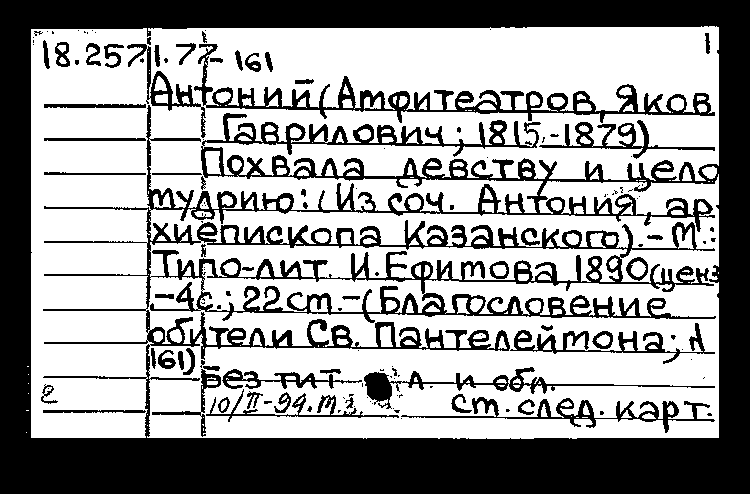 18.257.1.77-161
1.
Антоний (Амфитеатров, Яков
Гаврилович; 1815.-1879)
Похвала девству и цело
мудрию: (Из соч. Антония, ар-
хиепископа Казанского).- М.:
Типо-лит. И.Ефимова, 1890 (ценз
.-4с.; 22см.-(Благословение
обители Св. Пантелеймона; №
161)
Без тит л. и обл.
2
10/II-94.м.з.
см. след. карт.